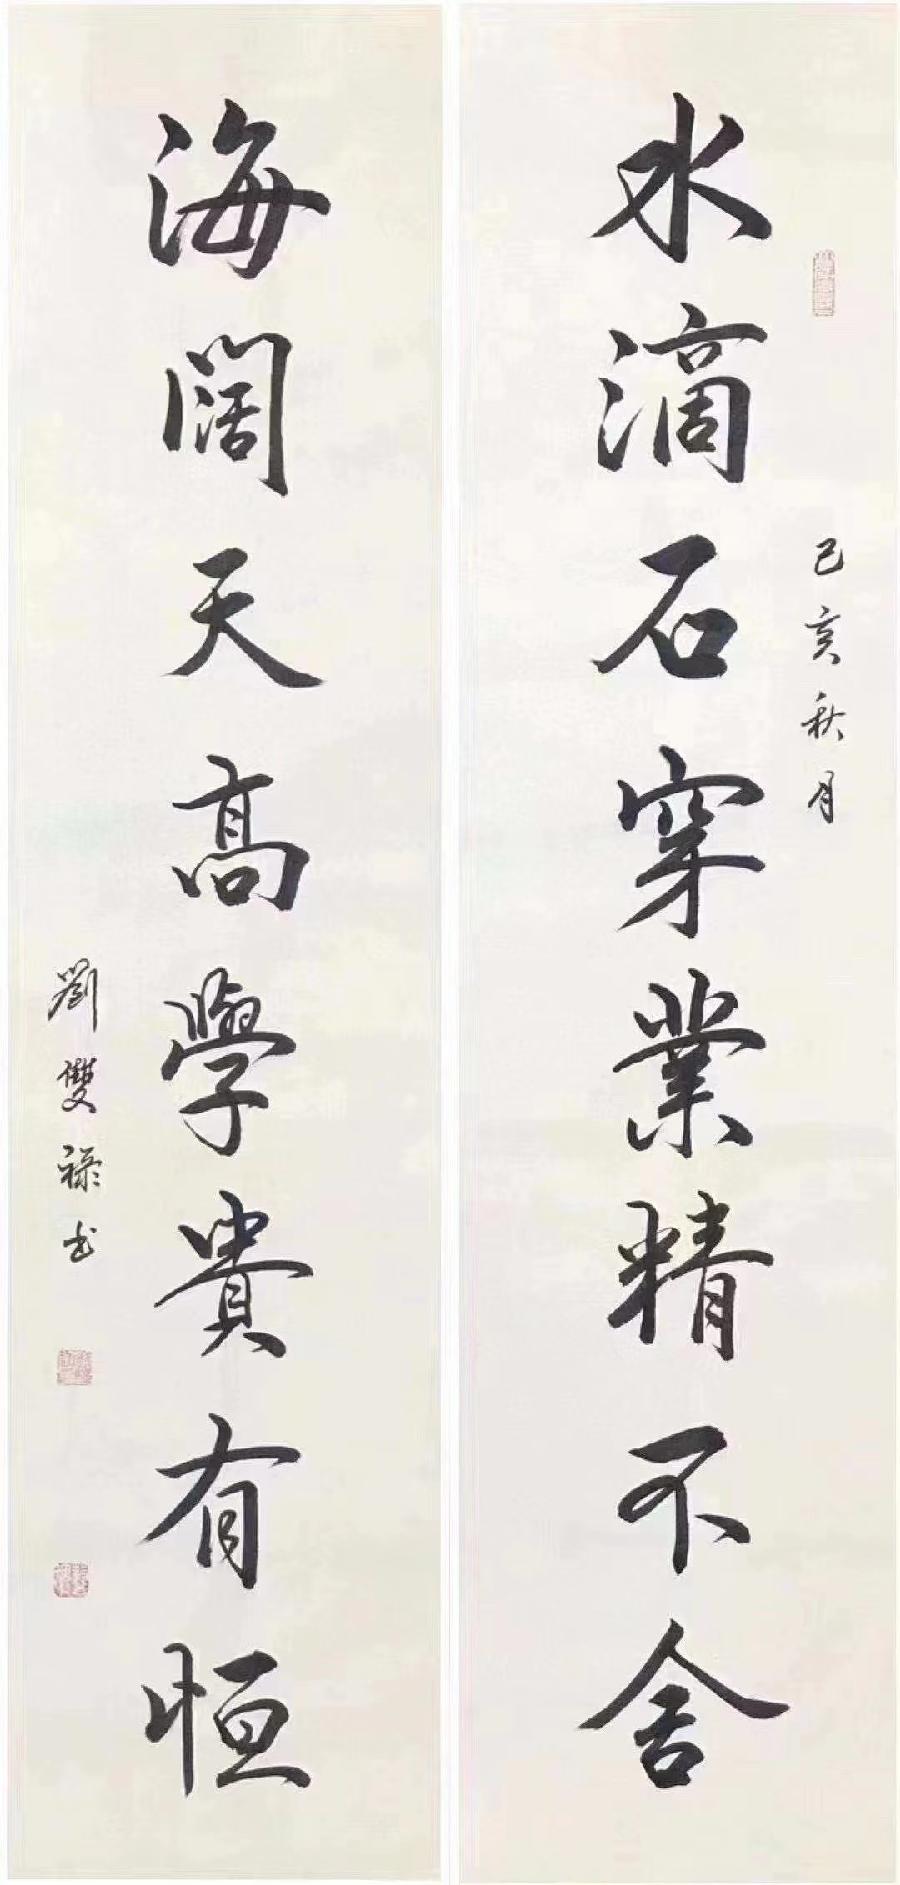 己亥秋月
水滴石穿業精不舍
海闊天高學貴有恒
劉雙祿书